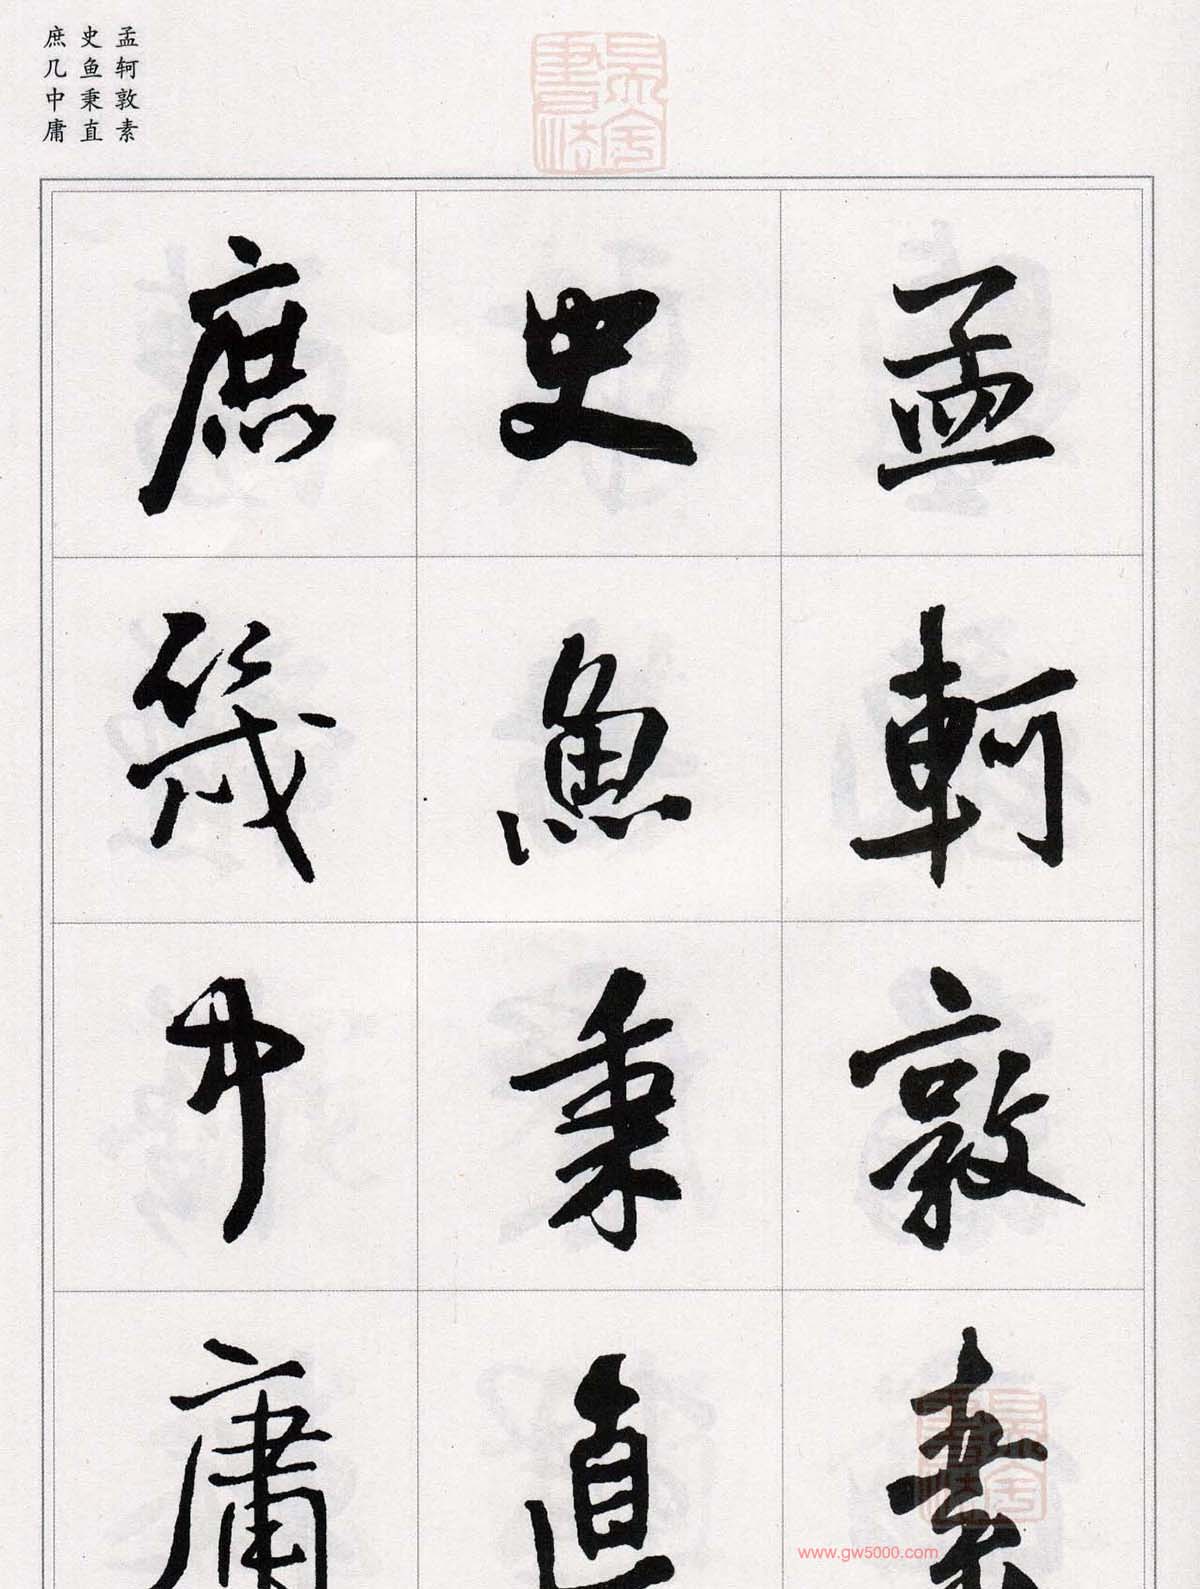 孟轲敦素
史鱼秉直
庶几中庸
孟軻敦素
史魚秉直
庶幾中庸
www.gw5000.com